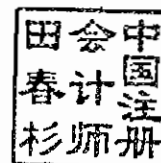 中国注册
会计师
田春杉